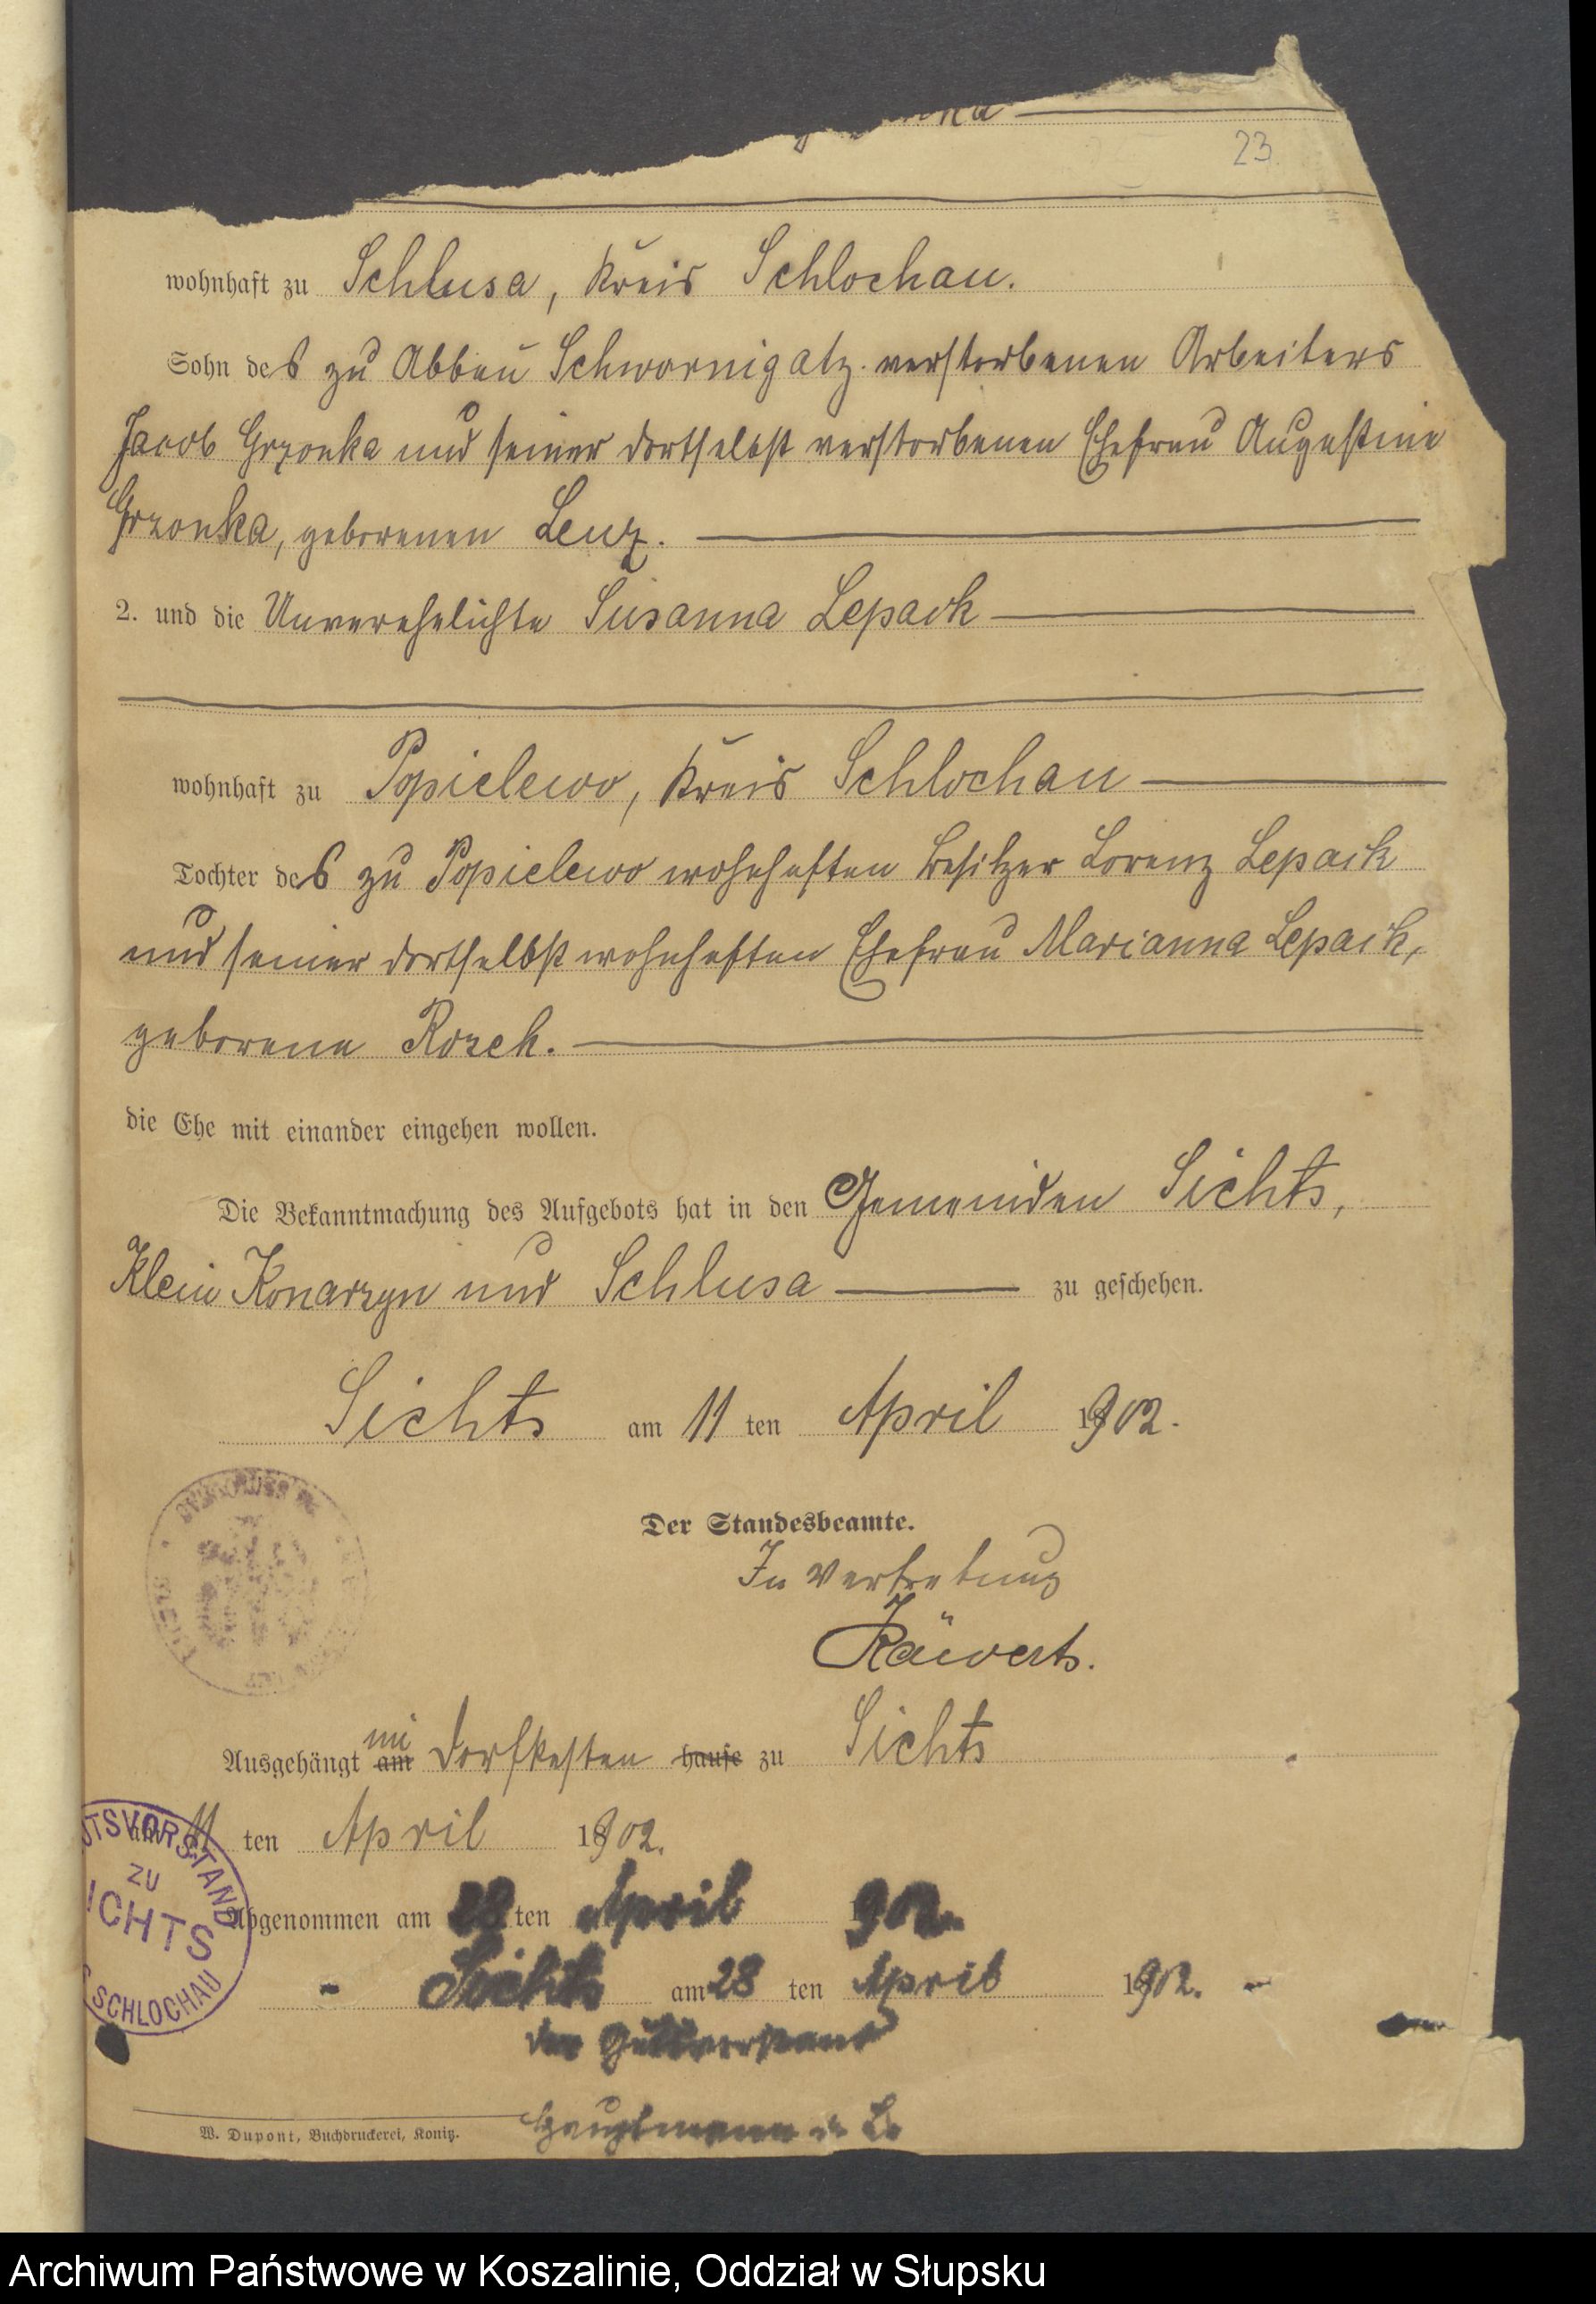 23
wohnhaft zu Schlusa, Kreis Schlochau.
Sohn des zu Abbau Schwornigatz verstorbenen Arbeiters
Jacob Grzonka und seiner dortselbst verstorbenen Ehefrau Augustine
Grzonka, geborenen Lenz.
2. und die Unverehelichte Susanna Lepack
wohnhaft zu Popielewo, Kreis Schlochau
Tochter des zu Popielewo wohnhaften Besitzer Lorenz Lepack
und seiner dortselbst wohnhaften Ehefrau Marianna Lepack,
geborene Rozek.
die Ehe mit einander eingehen wollen.
Die Bekanntmachung des Aufgebots hat in den Gemeinden Sichts,
Klein Konarzyn und Schlusa zu geschehen.
Sichts am 11 ten April 1902.
Der Standesbeamte.
In Vertretung
Räwerts.
im
Ausgehängt am Dorfkasten hause zu Sichts
am 11 ten April 1902.
UTSVORSTAND
ZU
ICHTS
SCHLOCHAU
Abgenommen am 28 ten April 902.
Sichts am 28 ten April 1902.
der Gutsvorstand
Hauptmann
W. Dupont, Buchdruckerei, Konitz.
Archiwum Państwowe w Koszalinie, Oddział w Słupsku